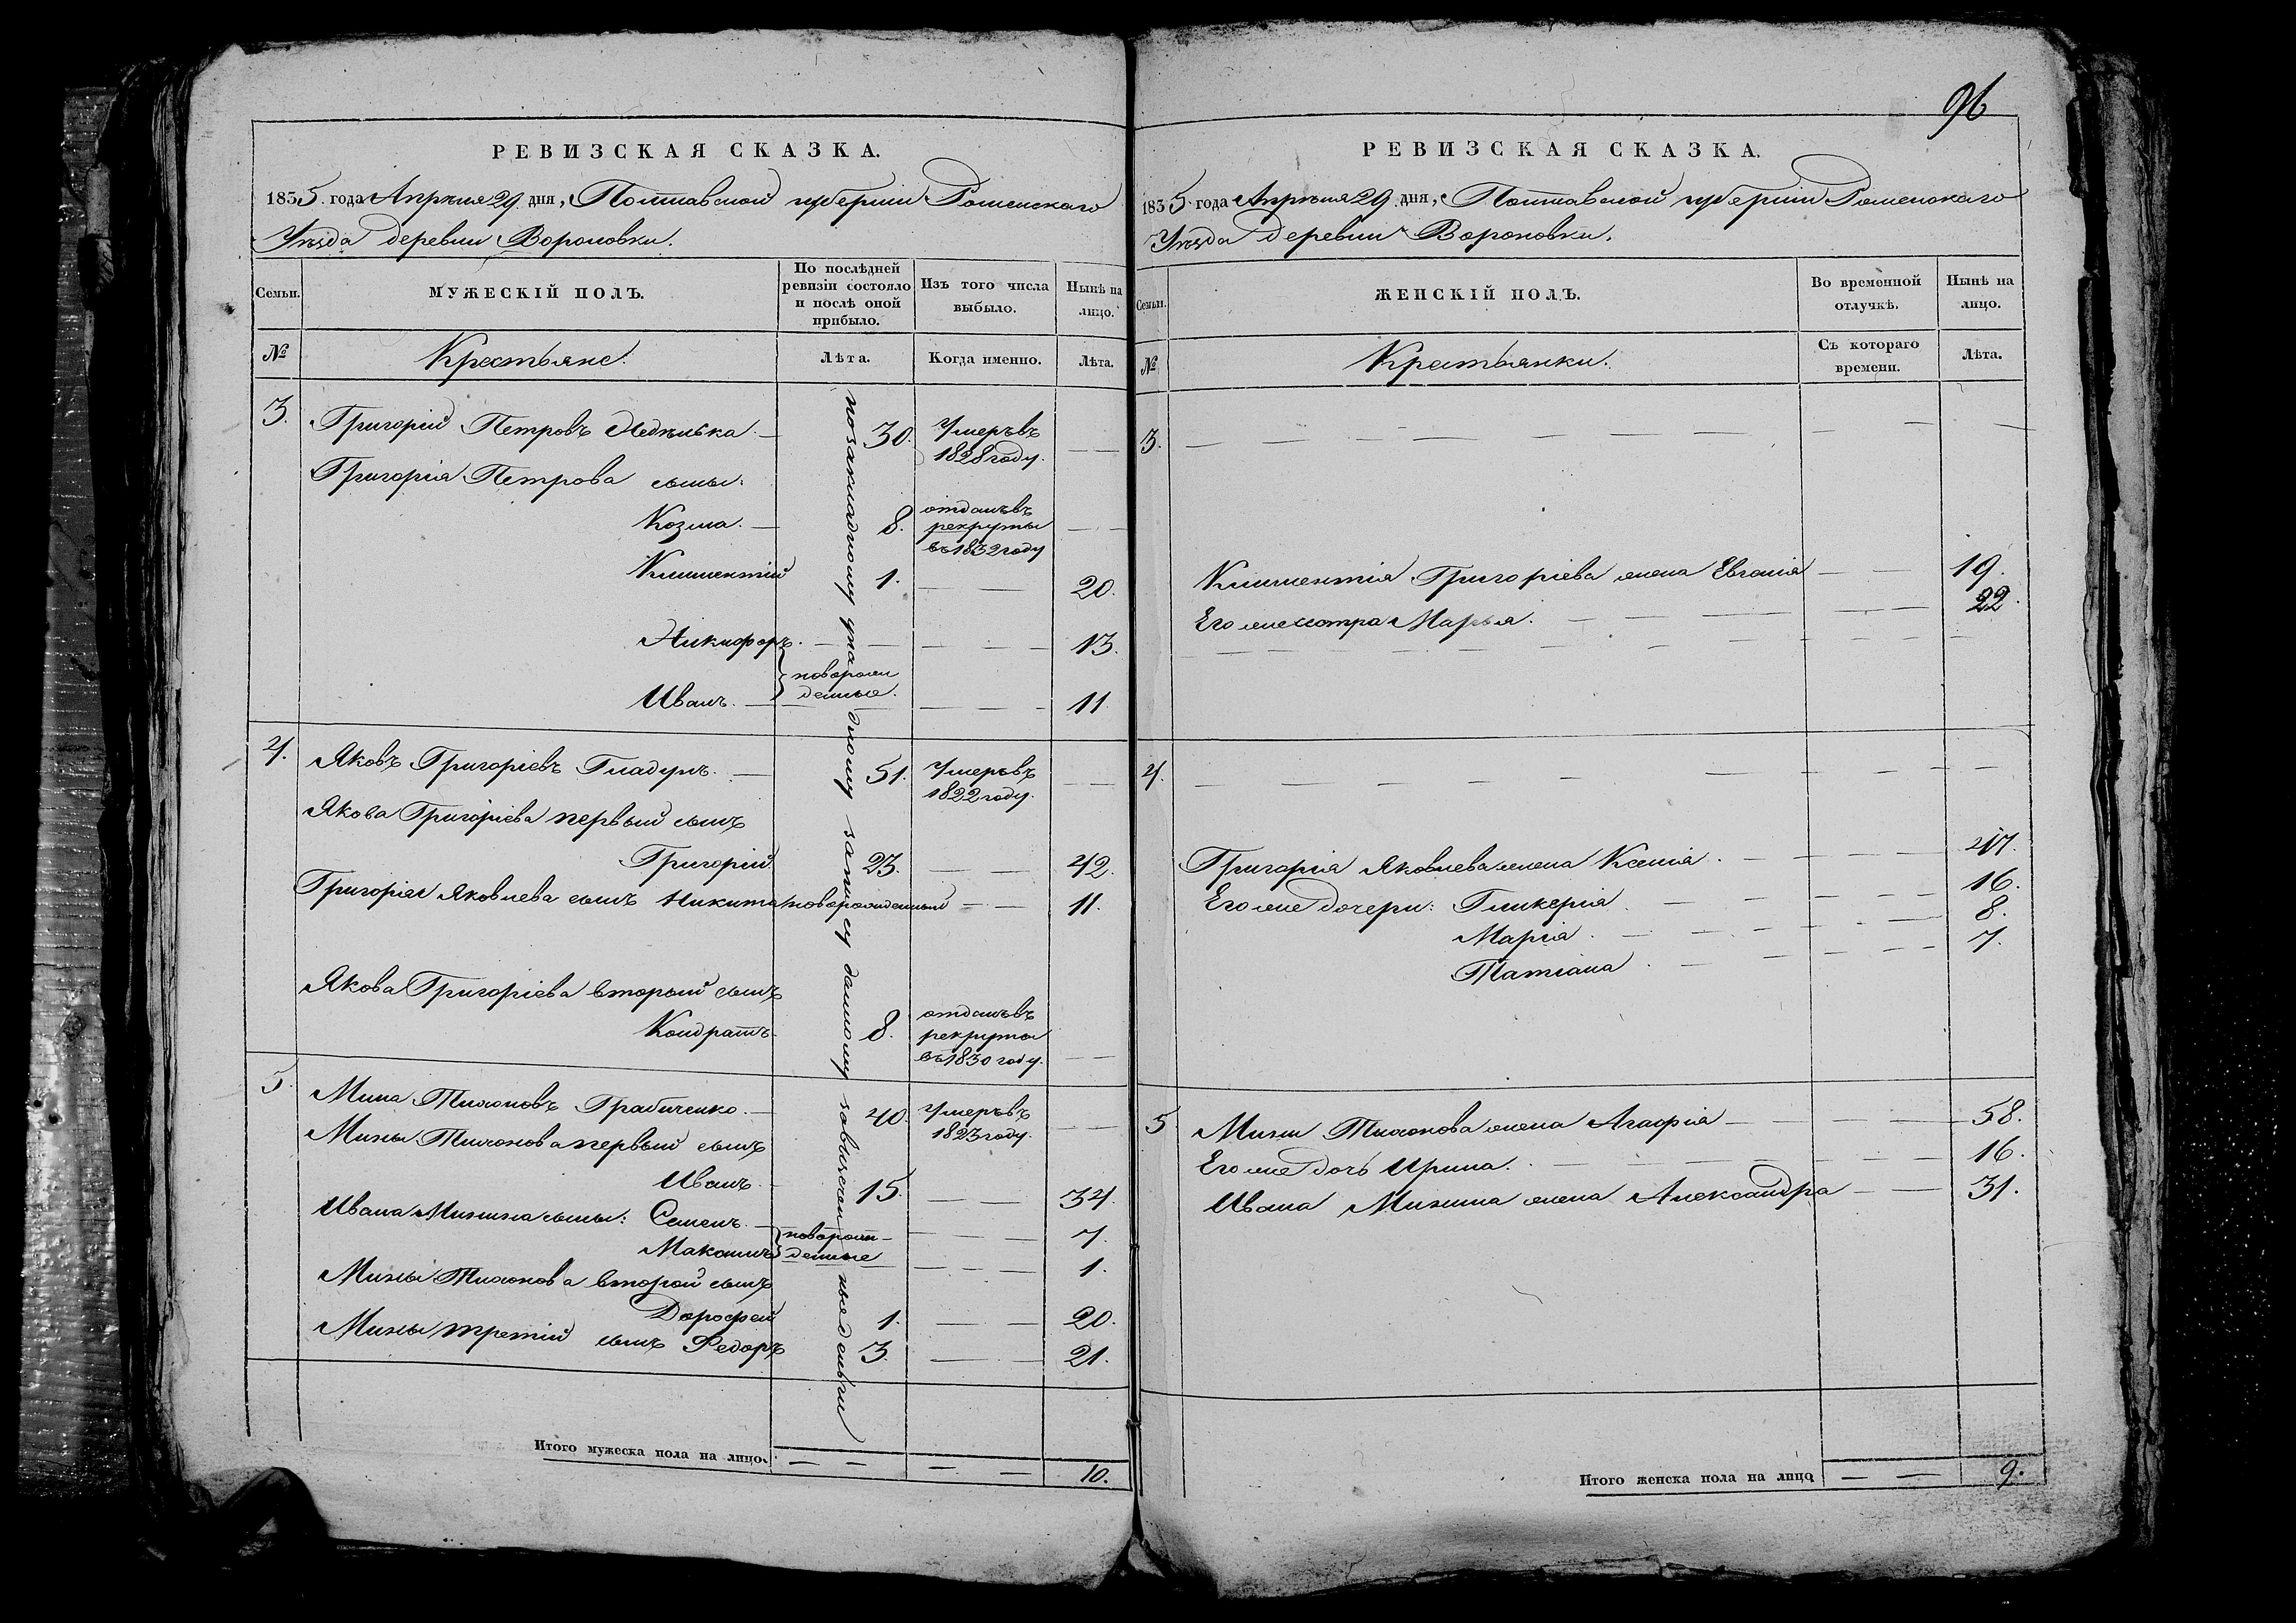 96
РЕВИЗСКАЯ СКАЗКА.
1835 года Апрѣля 29 дня, Полтавской губерніи Роменскаго
Уѣзда деревни Вороновки.
Семьи.
МУЖЕСКІЙ ПОЛЪ.
По послѣдней ревизіи состояло и послѣ оной прибыло.
Изъ того числа выбыло.
Нынѣ на лицо.
№
Крестьяне.
Лѣта.
Когда именно.
Лѣта.
по закладному упадному запису данному завычеты недвиги
3. Григорій Петровъ Недѣлька. — 30. Умеръ въ 1828 году. — —
Григорія Петрова сыны:
Козма. — 8. отданъ въ рекруты въ 1832 году — —
Климентій 1. — — 20.
Никифоръ. — — — — 13.
новорожденные.
Иванъ. — — — — 11.
4. Яковъ Григоріевъ Гладунъ. — 51. Умеръ въ 1822 году. — —
Якова Григоріева первый сынъ
Григорій 23. — — 42.
Григорія Яковлева сынъ Никита новорожденный — — 11.
Якова Григоріева вторый сынъ
Кондратъ. 8. отданъ въ рекруты въ 1830 году. — —
5. Мина Тихоновъ Грабченко. — 40. Умеръ въ 1823 году. — —
Мины Тихонова первый сынъ
Иванъ. — 15. — — 34.
Ивана Минина сыны: Семенъ. — — — — 7.
новорожденные
Максимъ — — — 1.
Мины Тихонова второй сынъ
Дорофей 1. — — 20.
Мины третій сынъ Федоръ 3. — — 21.
Итого мужеска пола на лицо. — — — — 10.
РЕВИЗСКАЯ СКАЗКА.
1835 года Апрѣля 29 дня, Полтавской губерніи Роменскаго
Уѣзда деревни Вороновки.
Семьи.
ЖЕНСКІЙ ПОЛЪ.
Во временной отлучкѣ.
Нынѣ на лицо.
№
Крестьянки.
Съ котораго времени.
Лѣта.
3. — — — —
Климентія Григоріева жена Евгенія — — 19.
Его же сестра Марья. — — — 22.
4. — — — —
Григорія Яковлева жена Ксенія. — — — 47.
Его же дочери: Гликерія — — — 16.
Марія. — — — 8.
Татіана. — — — 7.
5 Мины Тихонова жена Агафія — — — 58.
Его же дочь Ирина. — — — 16.
Ивана Минина жена Александра — — 31.
Итого женска пола на лицо — — 9.